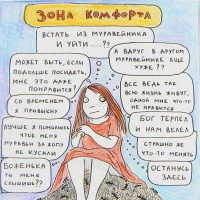 ЗОНА КОМФОРТА
ВСТАТЬ ИЗ МУРАВЕЙНИКА
И УЙТИ....??
А ВДРУГ В ДРУГОМ
МУРАВЕЙНИКЕ ЕЩЕ
ХУЖЕ ??
МОЖЕТ БЫТЬ, ЕСЛИ
ПОДОЛЬШЕ ПОСИДЕТЬ,
МНЕ ЭТО ДАЖЕ
ПОНРАВИТСЯ?
СО ВРЕМЕНЕМ
Я ПРИВЫКНУ
ВСЕ ВЕДЬ ТАК
ВСЮ ЖИЗНЬ ЖИВУТ,
ОДНОЙ МНЕ ЧТО-ТО
НЕ НРАВИТСЯ
ЛУЧШЕ Я ПОМОЛЮСЬ
ЧТОБ МЕНЯ
МУРАВЬИ ЗА ЖОПУ
НЕ КУСАЛИ
БОГ ТЕРПЕЛ
И НАМ ВЕЛЕЛ
СТРАШНО ЖЕ
ЧТО-ТО МЕНЯТЬ
БОЖЕНЬКА
ТЫ МЕНЯ
СЛЫШИШЬ??
ОСТАНУСЬ
ЗДЕСЬ